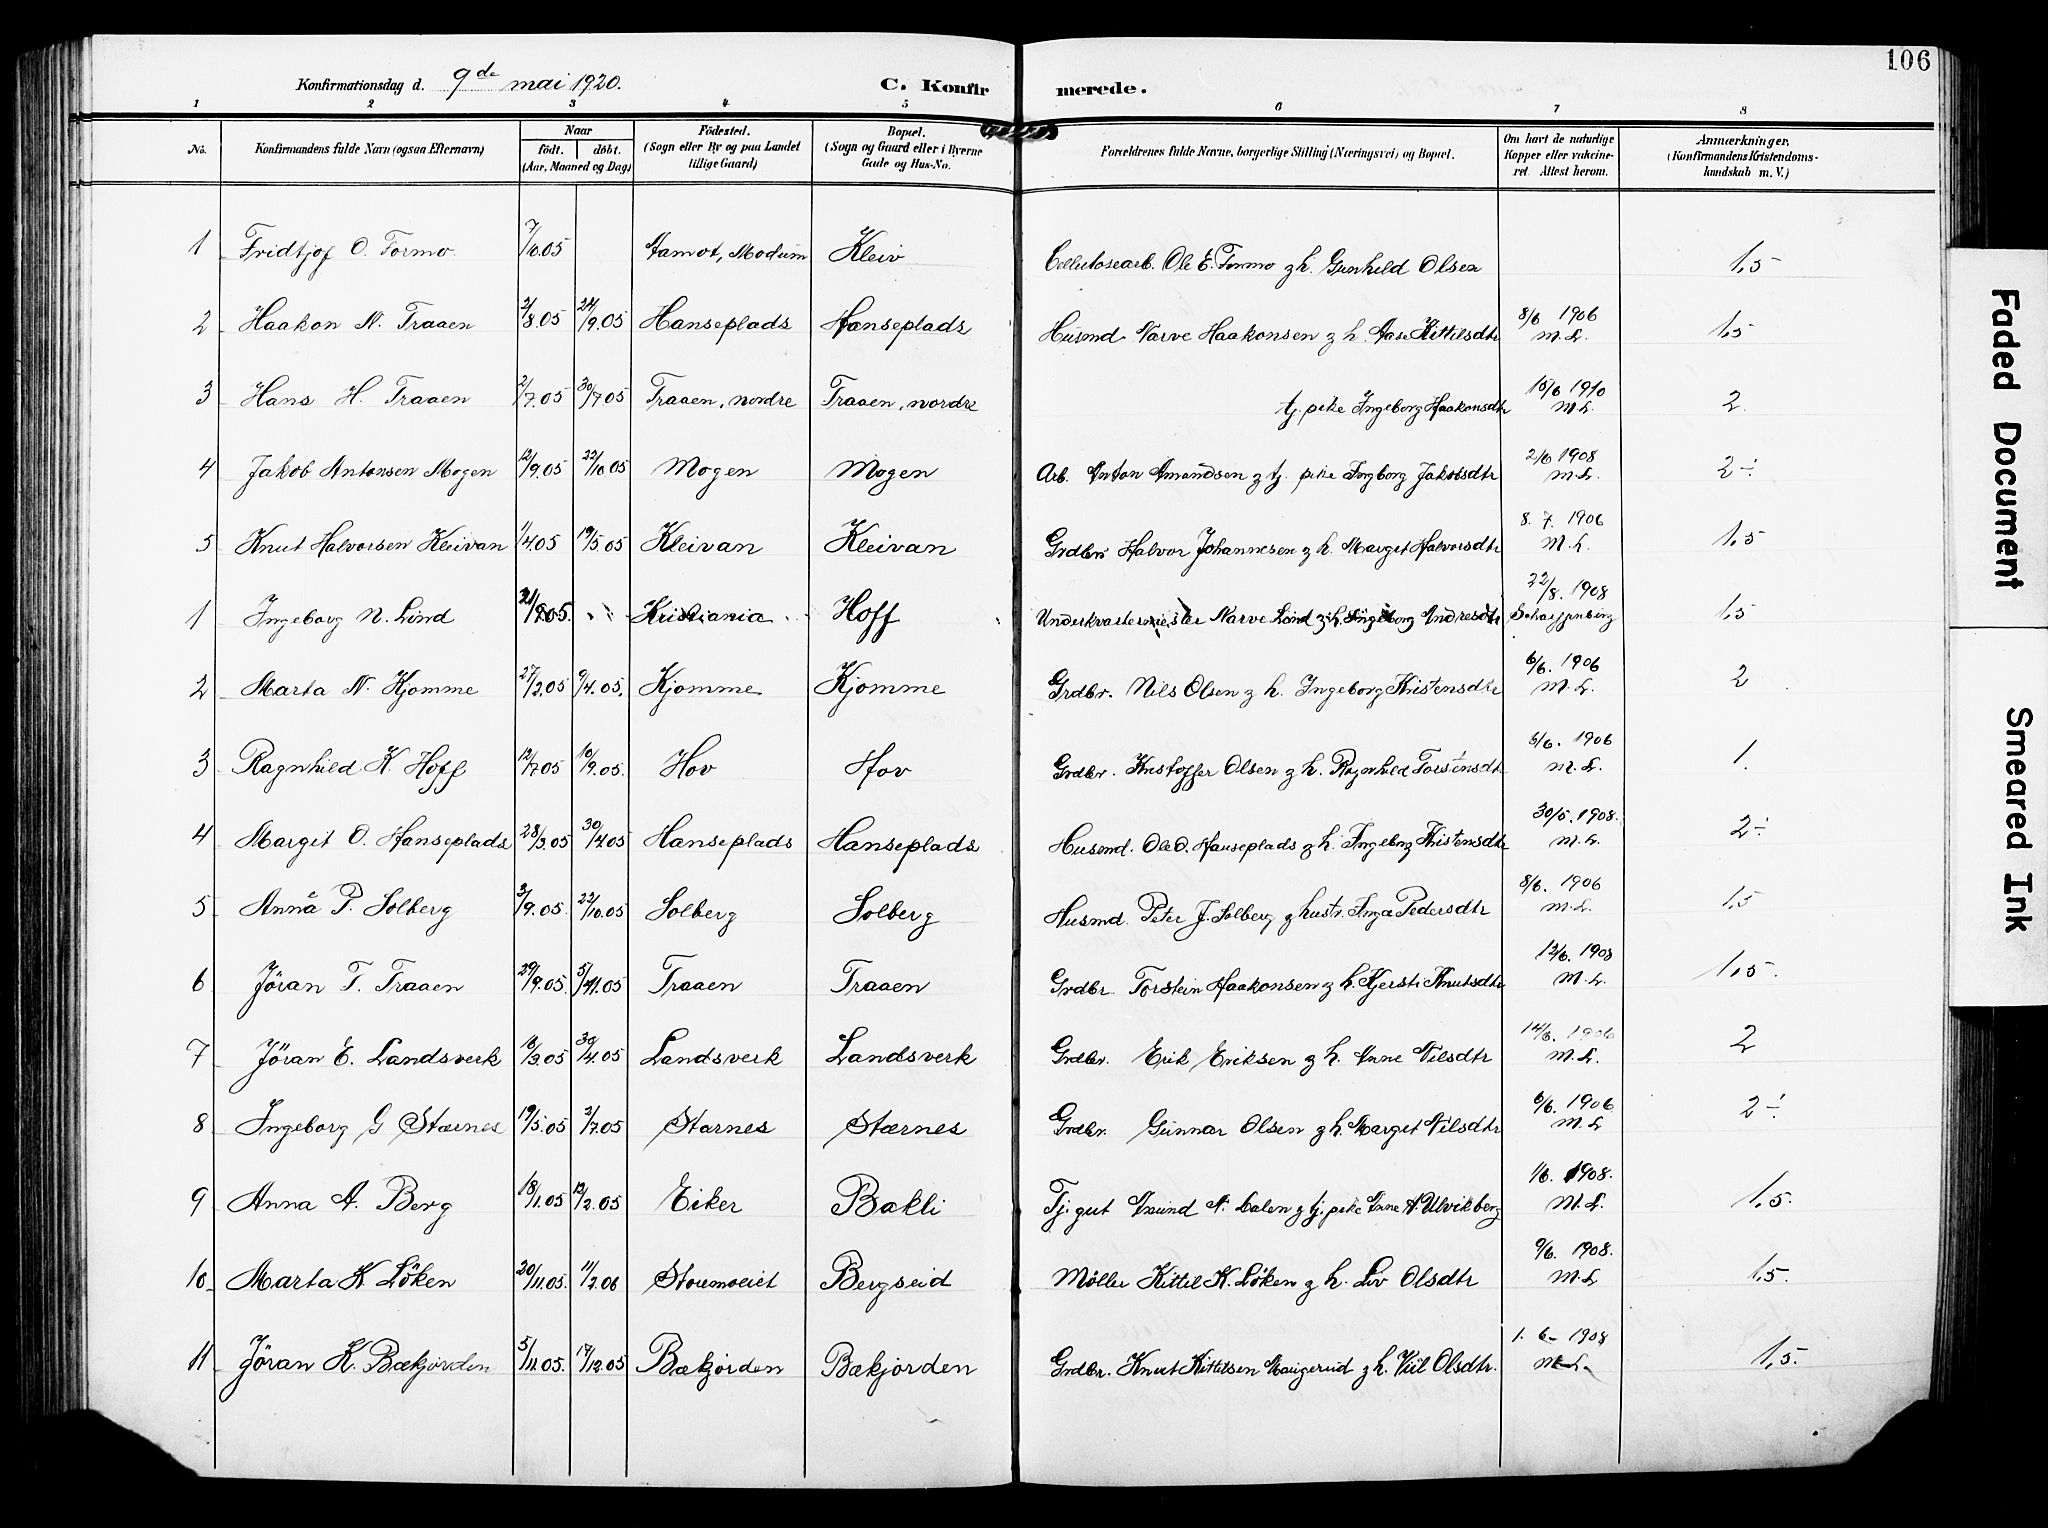 106
Konfirmationsdag d. 9de mai 1920. C. Konfirmerede.
1 2 3 4 5 6 7 8
No. Konfirmandens fulde Navn (ogsaa Efternavn) Naar födt. döbt. (Aar, Maaned og Dag) Födested. (Sogn eller By og paa Landet tillige Gaard) Bopæl. (Sogn og Gaard eller i Byerne Gade og Hus-No. Forældrenes fulde Navne, borgerlige Stilling (Næringsvei) og Bopæl. Om havt de naturlige Kopper eller vakcineret. Attest herom. Anmærkninger. (Konfirmandens Kristendomskundskab m. V.)
1 Fridtjof O. Formo 7/10.05 Aamot, Modum Kleiv Cellulosearb. Ole E. Formo g h. Gunhild Olsen 1,5
2 Haakon N. Traaen 2/8.05 24/9.05 Hanseplads Hanseplads Husmd Narve Haakonsen g h. Aase Kittilsdtr 8/6 1906 M.L. 1,5
3 Hans H. Traaen 2/7.05 30/7 05 Traaen, nordre Traaen, nordre tj. pike Ingeborg Haakonsdtr 1910 M.L. 2.
4 Jakob Antonsen Mogen 12/9.05 22/10 05 Mogen Mogen Arb. Anton Amundsen g tj. pike Ingborg Jakobsdtr 2/6 1908 M.L. 2÷
5 Knut Halvorsen Kleivan 1/4.05 19/5.05 Kleivan Kleivan Grdbr. Halvor Johannesen g h. Marget Halvorsdtr 8. 7. 1906 M.L. 1,5
1 Ingeborg N. Lind Kristiania Hoff Underkvartermester Narve Lind g h. Ingeborg Andresdtr 22/8. 1908 1,5
2 Marta N. Kjomme 27/2.05 9/4.05. Kjomme Kjomme Grdbr. Nils Olsen g h. Ingeborg Kristensdtr 6/6. 1906 M.L. 2
3 Ragnhild K. Hoff 12/7.05 10/9.05. Hov Hov Grdbr. Kristoffer Olsen g h. Ragnhild Torstensdtr 1906 M.L. 1.
4 Margit O. Hanseplads 28/3.05 30/4.05 Hanseplads Hanseplads Husmd. Ole O. Hanseplads g h. Ingeborg Kristensdtr 30/5. 1908. M.L. 2÷
5 Anna P. Solberg 3/9.05. 22/10.05 Solberg Solberg Husmd. Peter J. Solberg g hustr. Inga Pedersdtr 8/6. 1906 M.L. 1,5
6 Jöran T. Traaen 29/9.05. 5/11.05 Traaen Traaen Grdbr. Torstein Haakonsen g h. Kjersti Knutsdtr 12/6. 1908 M.L. 1,5.
7 Jöran E. Landsverk 16/3.05 30/4.05 Landsverk Landsverk Grdbr. Erik Eriksen g h. Anne Nilsdtr 14/6. 1906 M.L. 2
8 Ingeborg G Stærnes 19/5.05 2/7.05 Starnes Stærnes Grdbr. Gunnar Olsen g h. Marget Nilsdtr 6/6. 1906 M.L. 2÷
9 Anna A. Berg 18/1.05 12/2.05 Eiker Bakli Tj. gut g tj. pike Anne A. Ulvikberg 1/6. 1908. M.L. 1,5.
10 Marta K Löken 20/11.05. 11/2.06 Bergseid Möller Kittil K. Löken g h. Liv Olsdtr 9/6. 1908. M.L. 1,5.
11 Jöran K. Bækjorden 5/11.05. 17/12.05 Bækjorden Bækjorden Grdbr. Knut Kittilsen Haugerud g h. Kiil Olsdtr. 1. 6– 1908 M.L. 1,5.
Faded Document
Smeared Ink